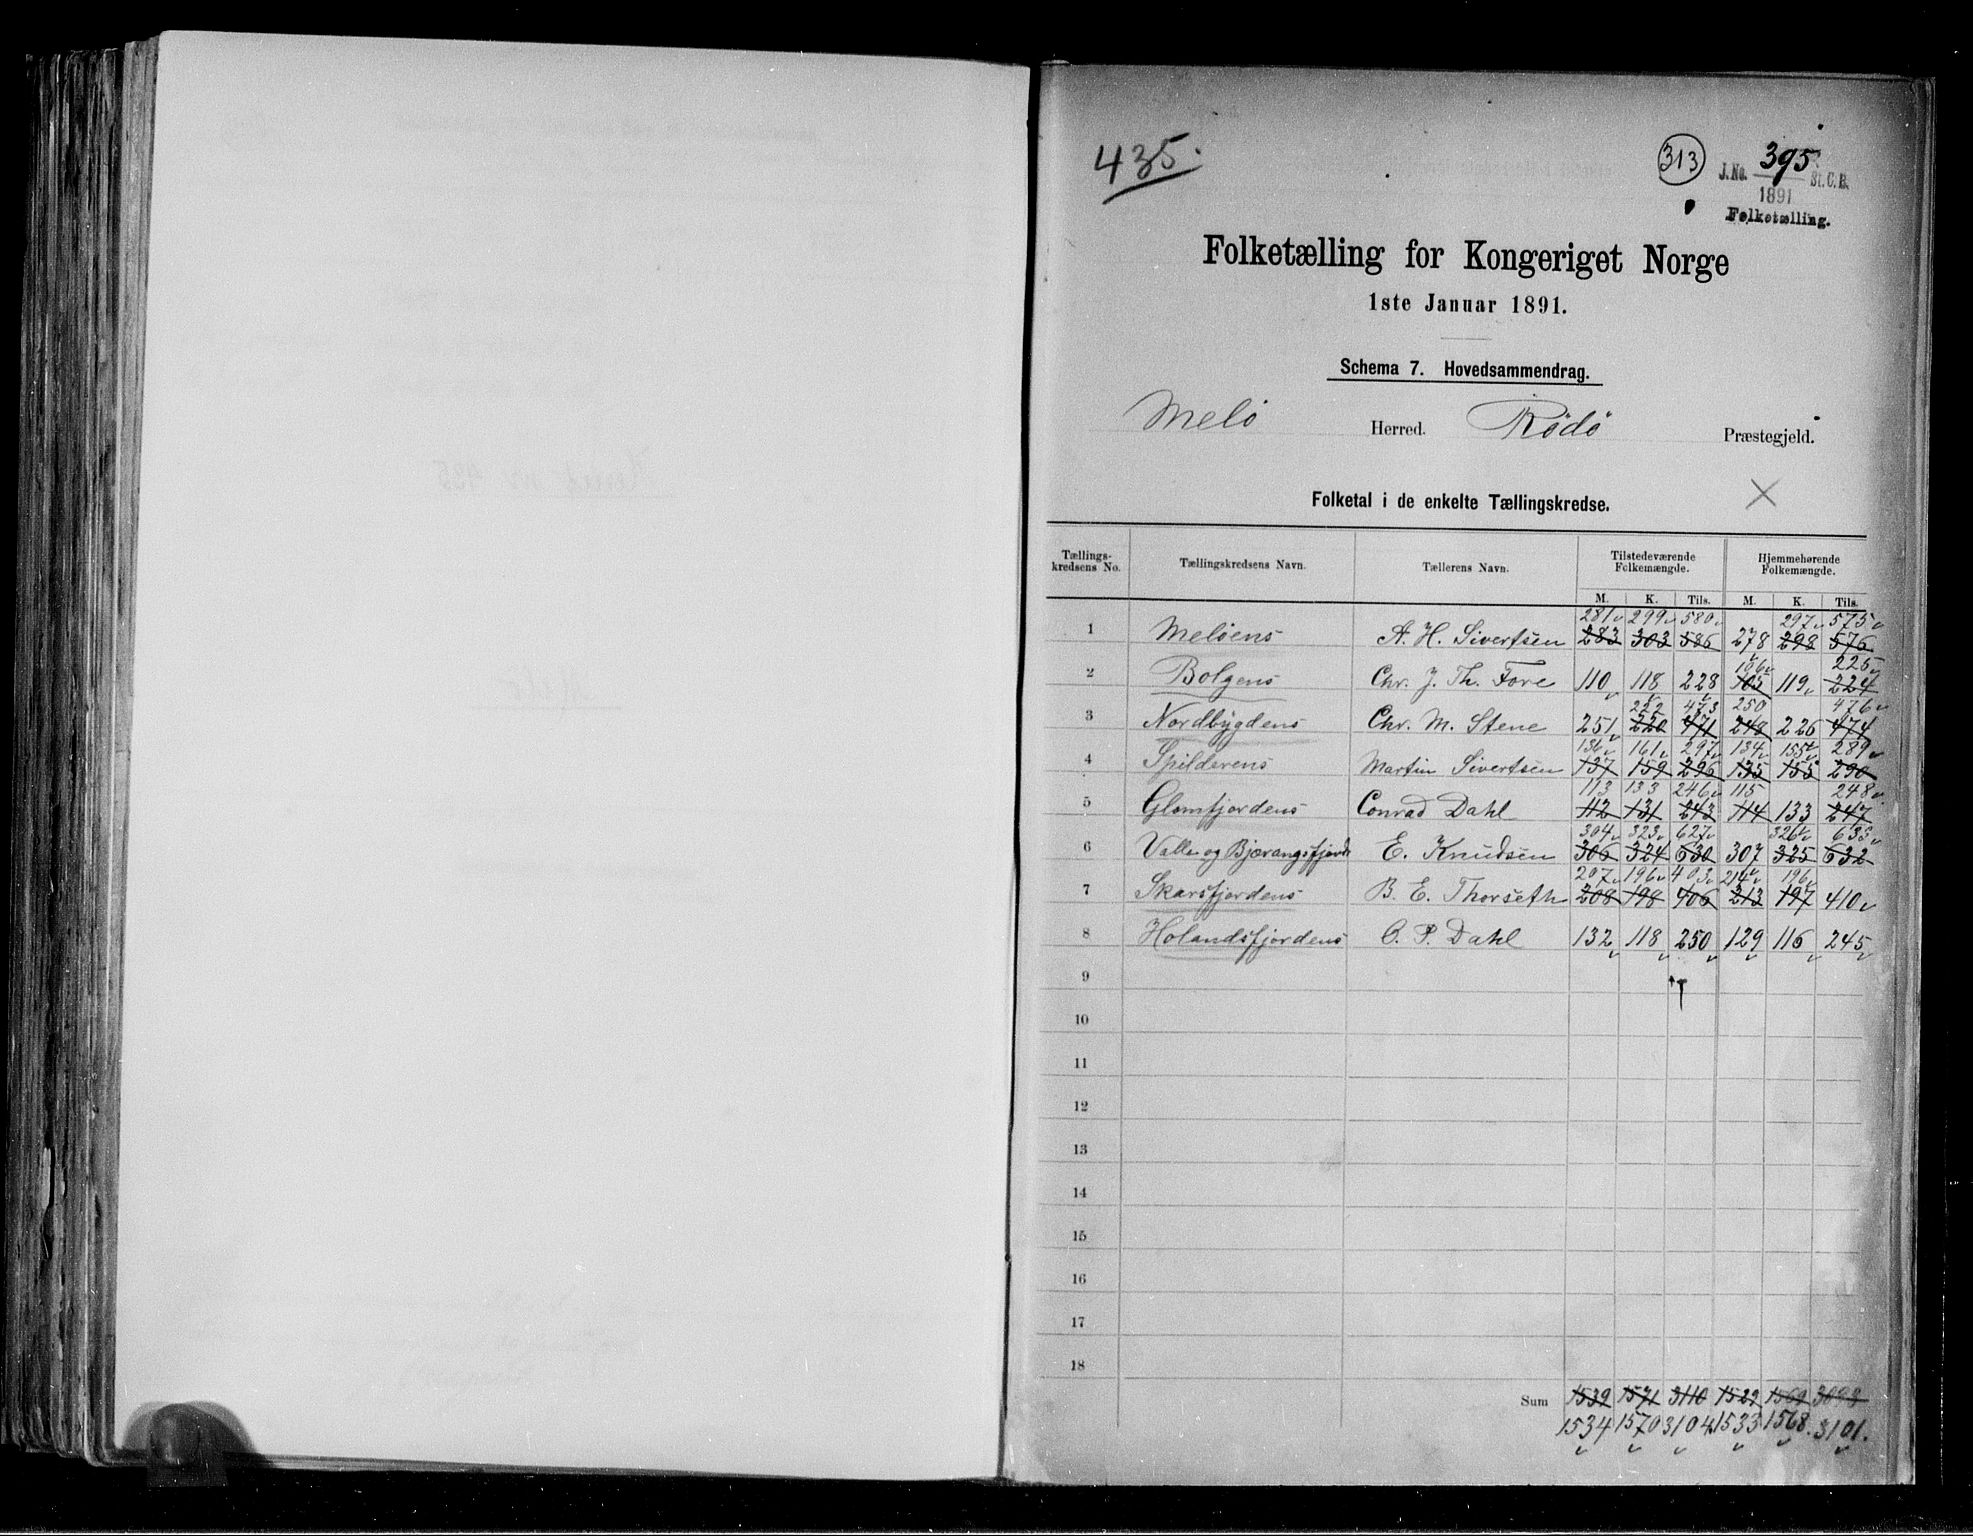 435.
313
J. No. 395 St. C. B.
1891
Folketælling.
Folketælling for Kongeriget Norge
1ste Januar 1891.
Schema 7. Hovedsammendrag.
Melö Herred. Rödö Præstegjeld.
Folketal i de enkelte Tællingskredse.
Tællings-kredsens No. Tællingskredsens Navn. Tællerens Navn. Tilstedeværende Folkemængde. Hjemmehørende Folkemængde.
M. K. Tils. M. K. Tils.
281 299 580 297 575
1 Melöens A. H. Sivertsen 283 303 586 278 298 576
106 225
2 Bolgens Chr. J. Th. Fore 110 118 228 105 119 224
222 473 250 476
3 Nordbygdens Chr. M. Stene 251 220 471 248 226 474
136 161 297 134 155 289
4 Spilderens Martin Sivertsen 137 159 296 135 155 290
113 133 246 115 248
5 Glomfjordens Conrad Dahl 112 131 243 114 133 247
304 323 627 326 633
6 Valle og Bjærangsfjords E. Knudsen 306 324 630 307 325 632
207 196 403 214 196
7 Skarsfjordens B. E. Thorseth 208 198 406 213 197 410
8 Holandsfjordens O. P. Dahl 132 118 250 129 116 245
9
10
11
12
13
14
15
16
17
18
Sum 1539 1571 3110 1529 1569 3098
1534 1570 3104 1533 1568. 3101.